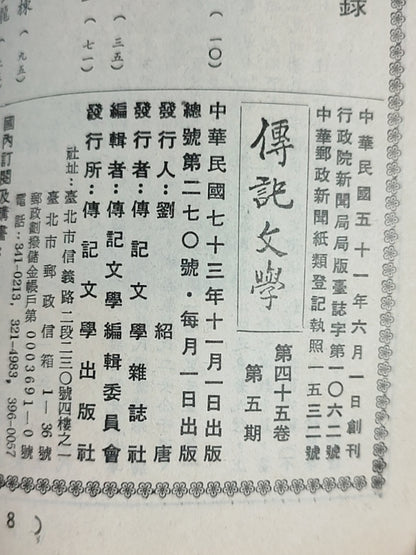 錄
(一〇)
(三五)
(七一)
(九五)
中華民國五十一年六月一日創刊
行政院新聞局局版臺誌字第一〇六二號
中華郵政新聞紙類登記執照一五三二號
傳記文學
第四十五卷
第五期
中華民國七十三年十一月一日出版
總號第二七〇號・每月一日出版
發行人:劉紹唐
發行者:傳記文學雜誌社
編輯者:傳記文學編輯委員會
發行所:傳記文學出版社
社址:臺北市信義路二段二三〇號四樓之一
臺北市郵政信箱1—36號
郵政劃撥儲金帳戶第0003691—0號
電話:341-0213, 321-4983, 396-0057
國內訂閱及購書:
8